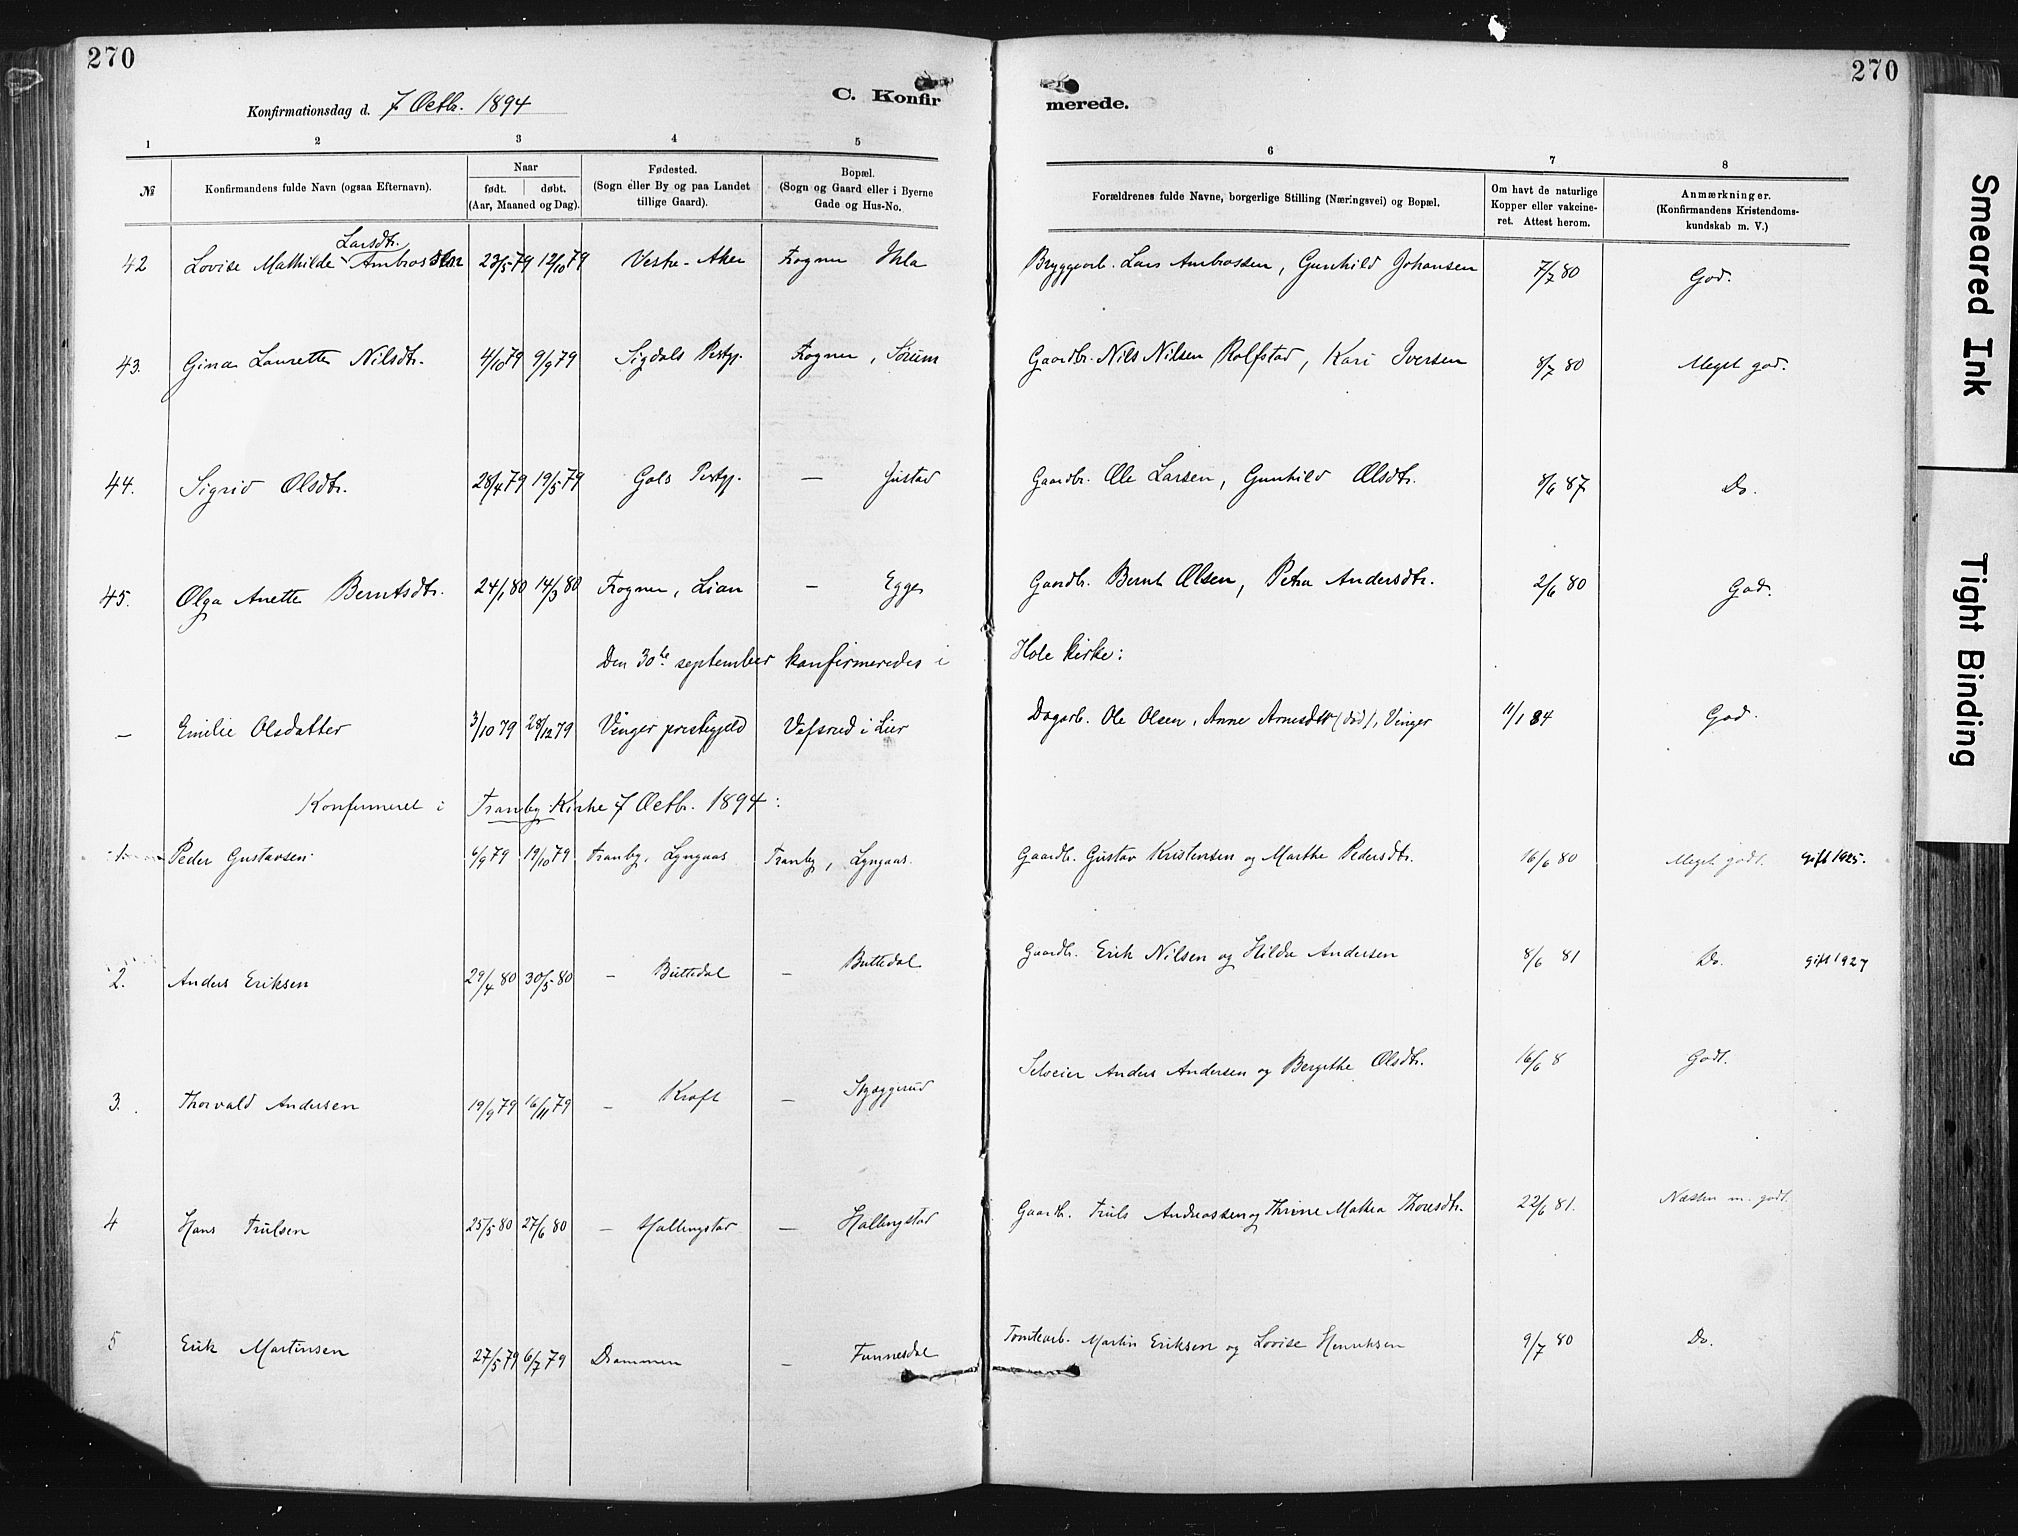 270
270
Konfirmationsdag d. 7 Octb. 1894
C. Konfirmerede.
1 2 3 4 5 6 7 8
№
Konfirmandens fulde Navn (ogsaa Efternavn).
Naar
født. døbt.
(Aar, Maaned og Dag).
Fødested.
(Sogn eller By og paa Landet
tillige Gaard).
Bopæl.
(Sogn og Gaard eller i Byerne
Gade og Hus-No.
Forældrenes fulde Navne, borgerlige Stilling (Næringsvei) og Bopæl.
Om havt de naturlige
Kopper eller vakcine-
ret. Attest herom.
Anmærkninger.
(Konfirmandens Kristendoms-
kundskab m. V.)
Larsdtr.
42 Lovise Mathilde Ambrossen 23/5 79 12/10 79 Vestre-Aker Frogner Ihla Bryggearb. Lars Ambrossen, Gunhild Johansen 7/7 80 God.
43. Gina Laurette Nilsdtr. 4/10 79 9/9 79 Sigdals Prstgj. Frogner, Sørum Gaardbr. Nils Nilsen Rolfstad, Kari Iversen 8/7 80 Meget god.
44. Sigrid Olsdtr. 28/4 79 19/5 79 Gols Prstgj. — Justad Gaardbr. Ole Larsen, Gunhild Olsdtr. 8/6 87 Do.
45. Olga Anette Berntsdtr. 24/1 80 14/3 80 Frogner, Lian — Egge Gaardbr. Bernt Olsen, Petra Andersdtr. 2/6 80 God.
Den 30te september konfirmeredes i Hole kirke:
— Emilie Olsdatter 3/10 79 28/12 79 Vinger prestegjeld Vefsrud i Lier Dagarb. Ole Olsen, Anne Arnesdtr (død), Vinger 11/1 84 God.
Konfirmeret i Tranby Kirke 7 Octb. 1894:
1. Peder Gustavsen 6/9 79 19/10 79 Tranby, Lyngaas Tranby, Lyngaas Gaardb. Gustav Kristensen og Marthe Pedersdtr. 16/6 80 Meget godt. Gift 1925.
2. Anders Eriksen 29/4 80 30/5 80 — Buttedal — Buttedal Gaardb. Erik Nilsen og Hilda Andersen 8/6 81 Do. gift 1927
3. Thorvald Andersen 19/9 79 16/11 79 — Kraft — Styggerud Selveier Anders Andersen og Bergithe Olsdtr. 16/6 8 Godt.
4 Hans Trulsen 25/5 80 27/6 80 — Hallingstad — Hallingstad Gaardb. Truls Andreassen og Thrine Mathea Thoresdtr. 22/6 81. Næsten m. godt.
5 Erik Martinsen 27/5 79 6/7 79 Drammen — Funnesdal Tomtearb. Martin Eriksen og Lovise Henriksen 9/7 80 Do.
Smeared Ink
Tight Binding